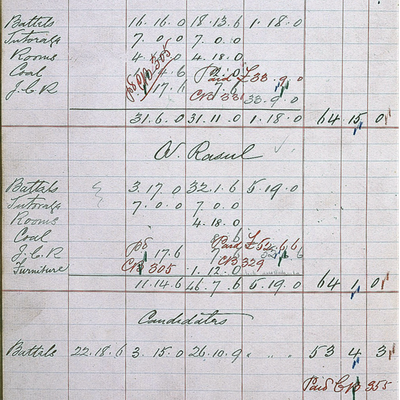 Battels 16.16.0 18.13.6 1.18.0
Tutorage 7.0.0 7.0.0
Rooms 4.18.0
Coal 4.6 Paid £33.9.0
J.C.R 17.6 7.6 33.9.0
31.6.0 31.11.0 1.18.0 64 15 0
N. Rasul
Battels 3.17.0 32.1.6 5.19.0
Tutorage 7.0.0 7.0.0
Rooms 4.18.0
Coal
J.C.R 17.6 Paid £52.6.6
Furniture CB 305 1.12.0 CB 329
11.14.6 46.7.6 5.19.0 64 1 0
Candidates
Battels 22.18.6 3.15.0 26.10.9 " " " 53 4 3
Paid CB 355